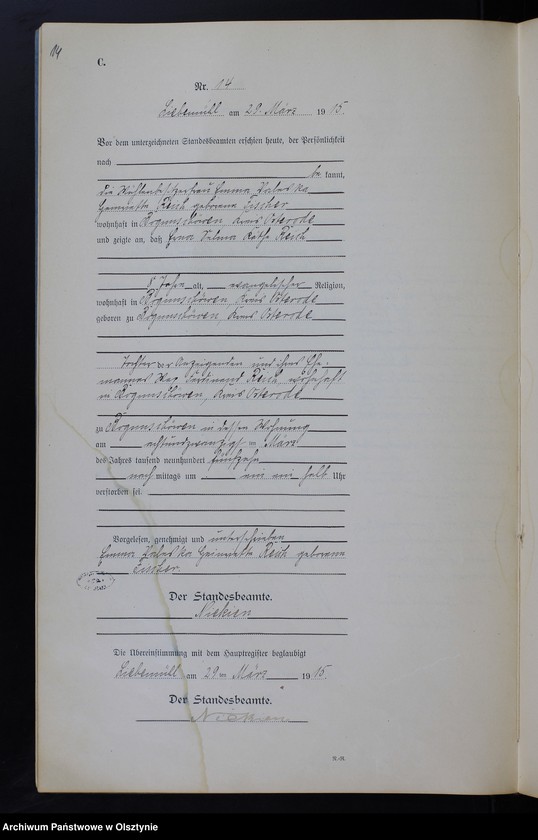 14
C.
Nr. 14
Liebemühl am 29. März 1915.
Vor dem unterzeichneten Standesbeamten erschien heute, der Persönlichkeit
nach
be kannt,
die Mühlenbesitzerfrau Emma Valeska
Henriette Resch geborene Fischer
wohnhaft in Kreis Osterode
und zeigte an, daß Erna Selma Käthe Resch
8 Jahre alt, evangelischer Religion,
wohnhaft in Kreis Osterode
geboren zu Kreis Osterode
Tochter der Anzeigenden und ihres Ehe-
mannes Ferdinand Resch, wohnhaft
in Kreis Osterode
zu in dessen Wohnung
am achtundzwanzigsten März
des Jahres tausend neunhundert fünfzehn
nach mittags um ein ein halb Uhr
verstorben sei.
Vorgelesen, genehmigt und unterschrieben
Emma Valeska Henriette Resch geborene
Fischer
Der Standesbeamte.
Niekien
Die Übereinstimmung mit dem Hauptregister beglaubigt
Liebemühl am 29ten März 1915.
Der Standesbeamte.
Niekien
Archiwum Państwowe w Olsztynie